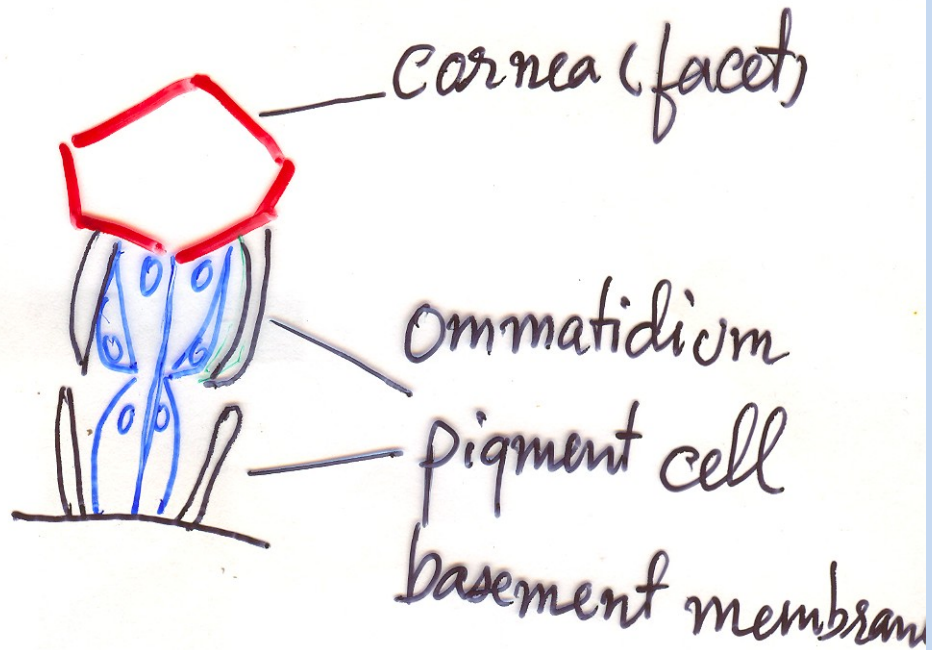 cornea (facet)
ommatidium
pigment cell
basement membran